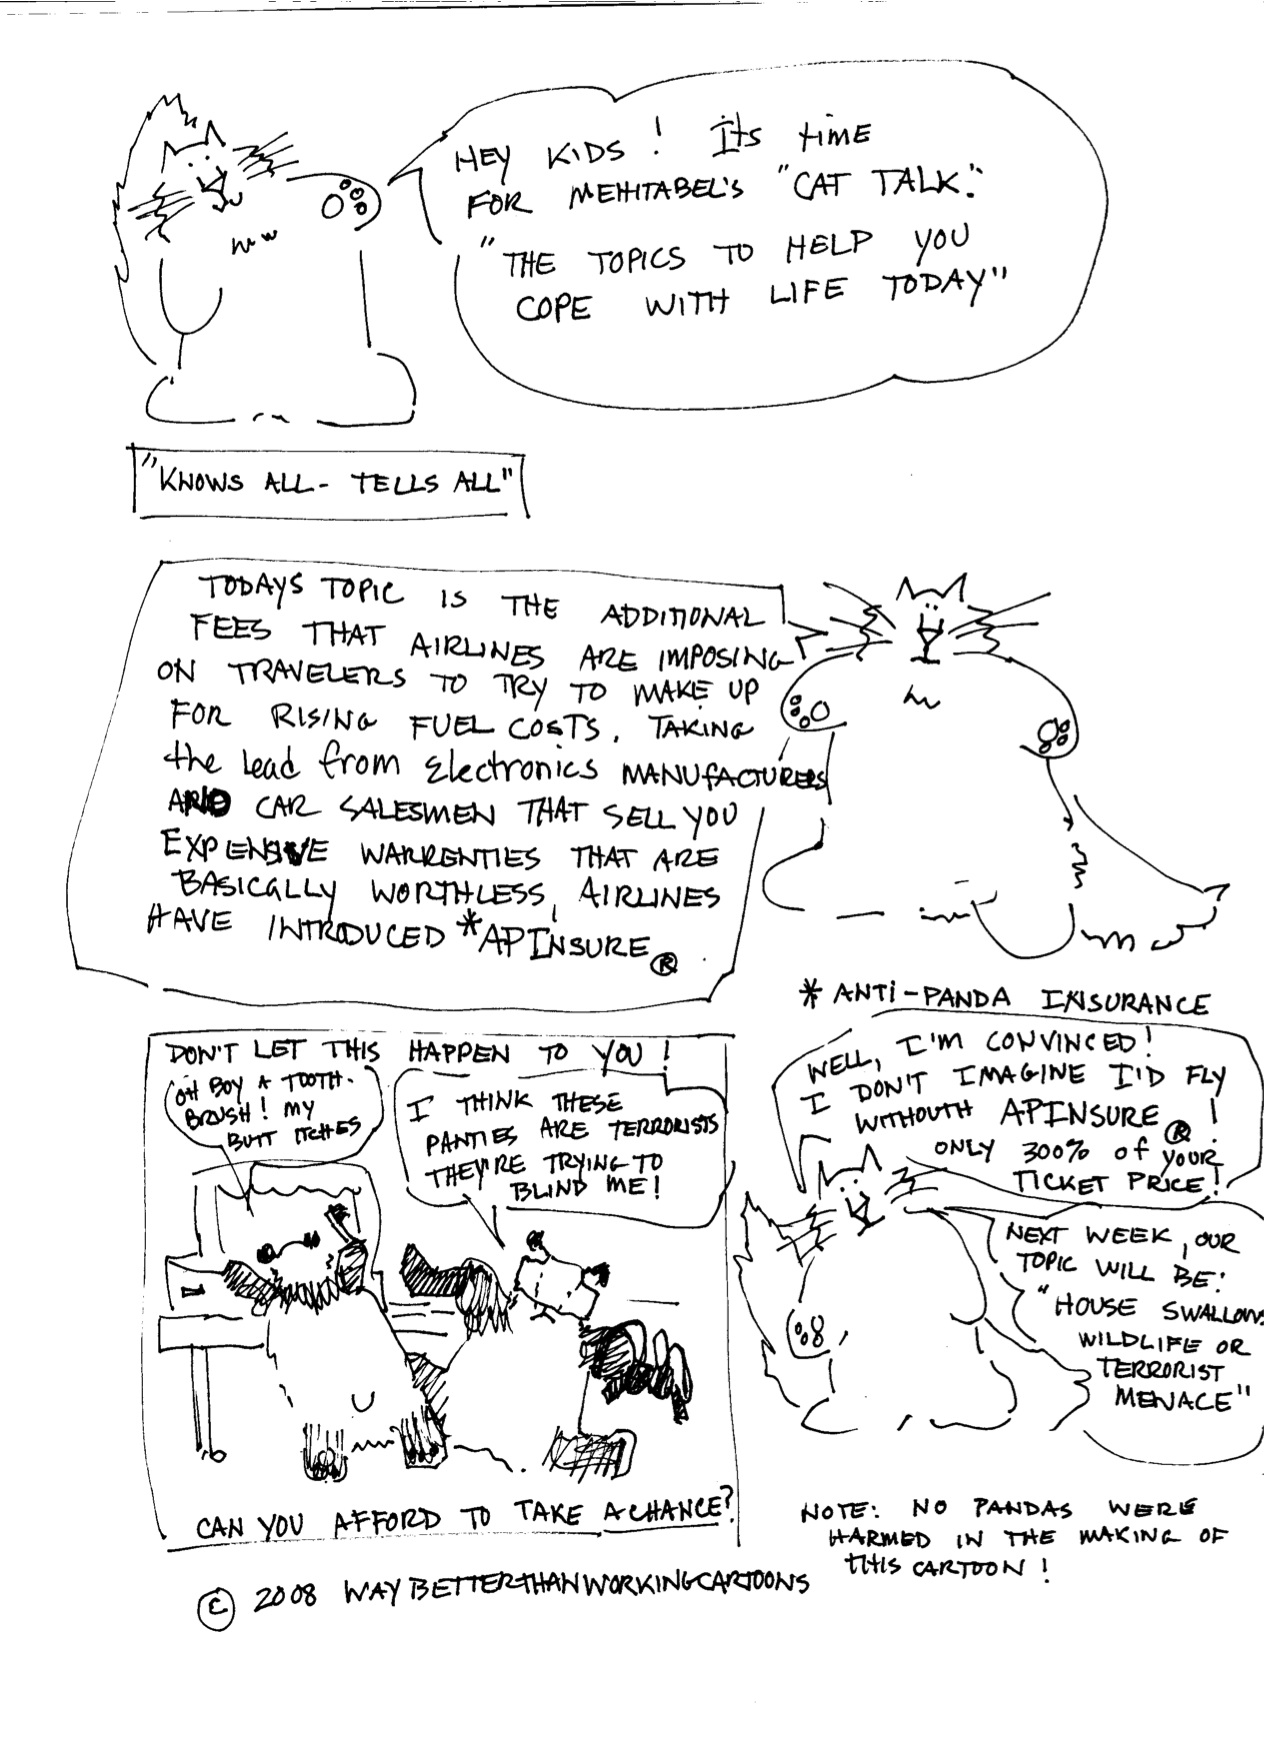 HEY KIDS! Its time
FOR MEHITABEL'S "CAT TALK."
"THE TOPICS TO HELP YOU
COPE WITH LIFE TODAY"
"KNOWS ALL- TELLS ALL"
TODAYS TOPIC IS THE ADDITIONAL
FEES THAT AIRLINES ARE IMPOSING
ON TRAVELERS TO TRY TO MAKE UP
FOR RISING FUEL COSTS. TAKING
the lead from Electronics MANUFACTURERS
AND CAR SALESMEN THAT SELL YOU
EXPENSIVE WARRENTIES THAT ARE
BASICALLY WORTHLESS, AIRLINES
HAVE INTRODUCED *APINSURE®.
* ANTI-PANDA INSURANCE
DON'T LET THIS HAPPEN TO YOU!
OH BOY A TOOTH-
BRUSH! MY
BUTT ITCHES
I THINK THESE
PANTIES ARE TERRORISTS
THEY'RE TRYING TO
BLIND ME!
CAN YOU AFFORD TO TAKE A CHANCE?
WELL, I'M CONVINCED!
I DON'T IMAGINE I'D FLY
WITHOUTH APINSURE®!
ONLY 300% of YOUR
TICKET PRICE!
NEXT WEEK, OUR
TOPIC WILL BE:
"HOUSE SWALLOWS
WILDLIFE OR
TERRORIST
MENACE"
NOTE: NO PANDAS WERE
HARMED IN THE MAKING OF
THIS CARTOON!
© 2008 WAYBETTERTHANWORKINGCARTOONS